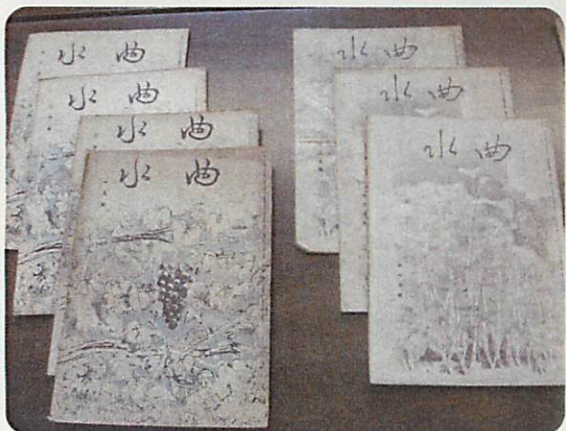 曲水
曲水
曲水
曲水
曲水
曲水
曲水